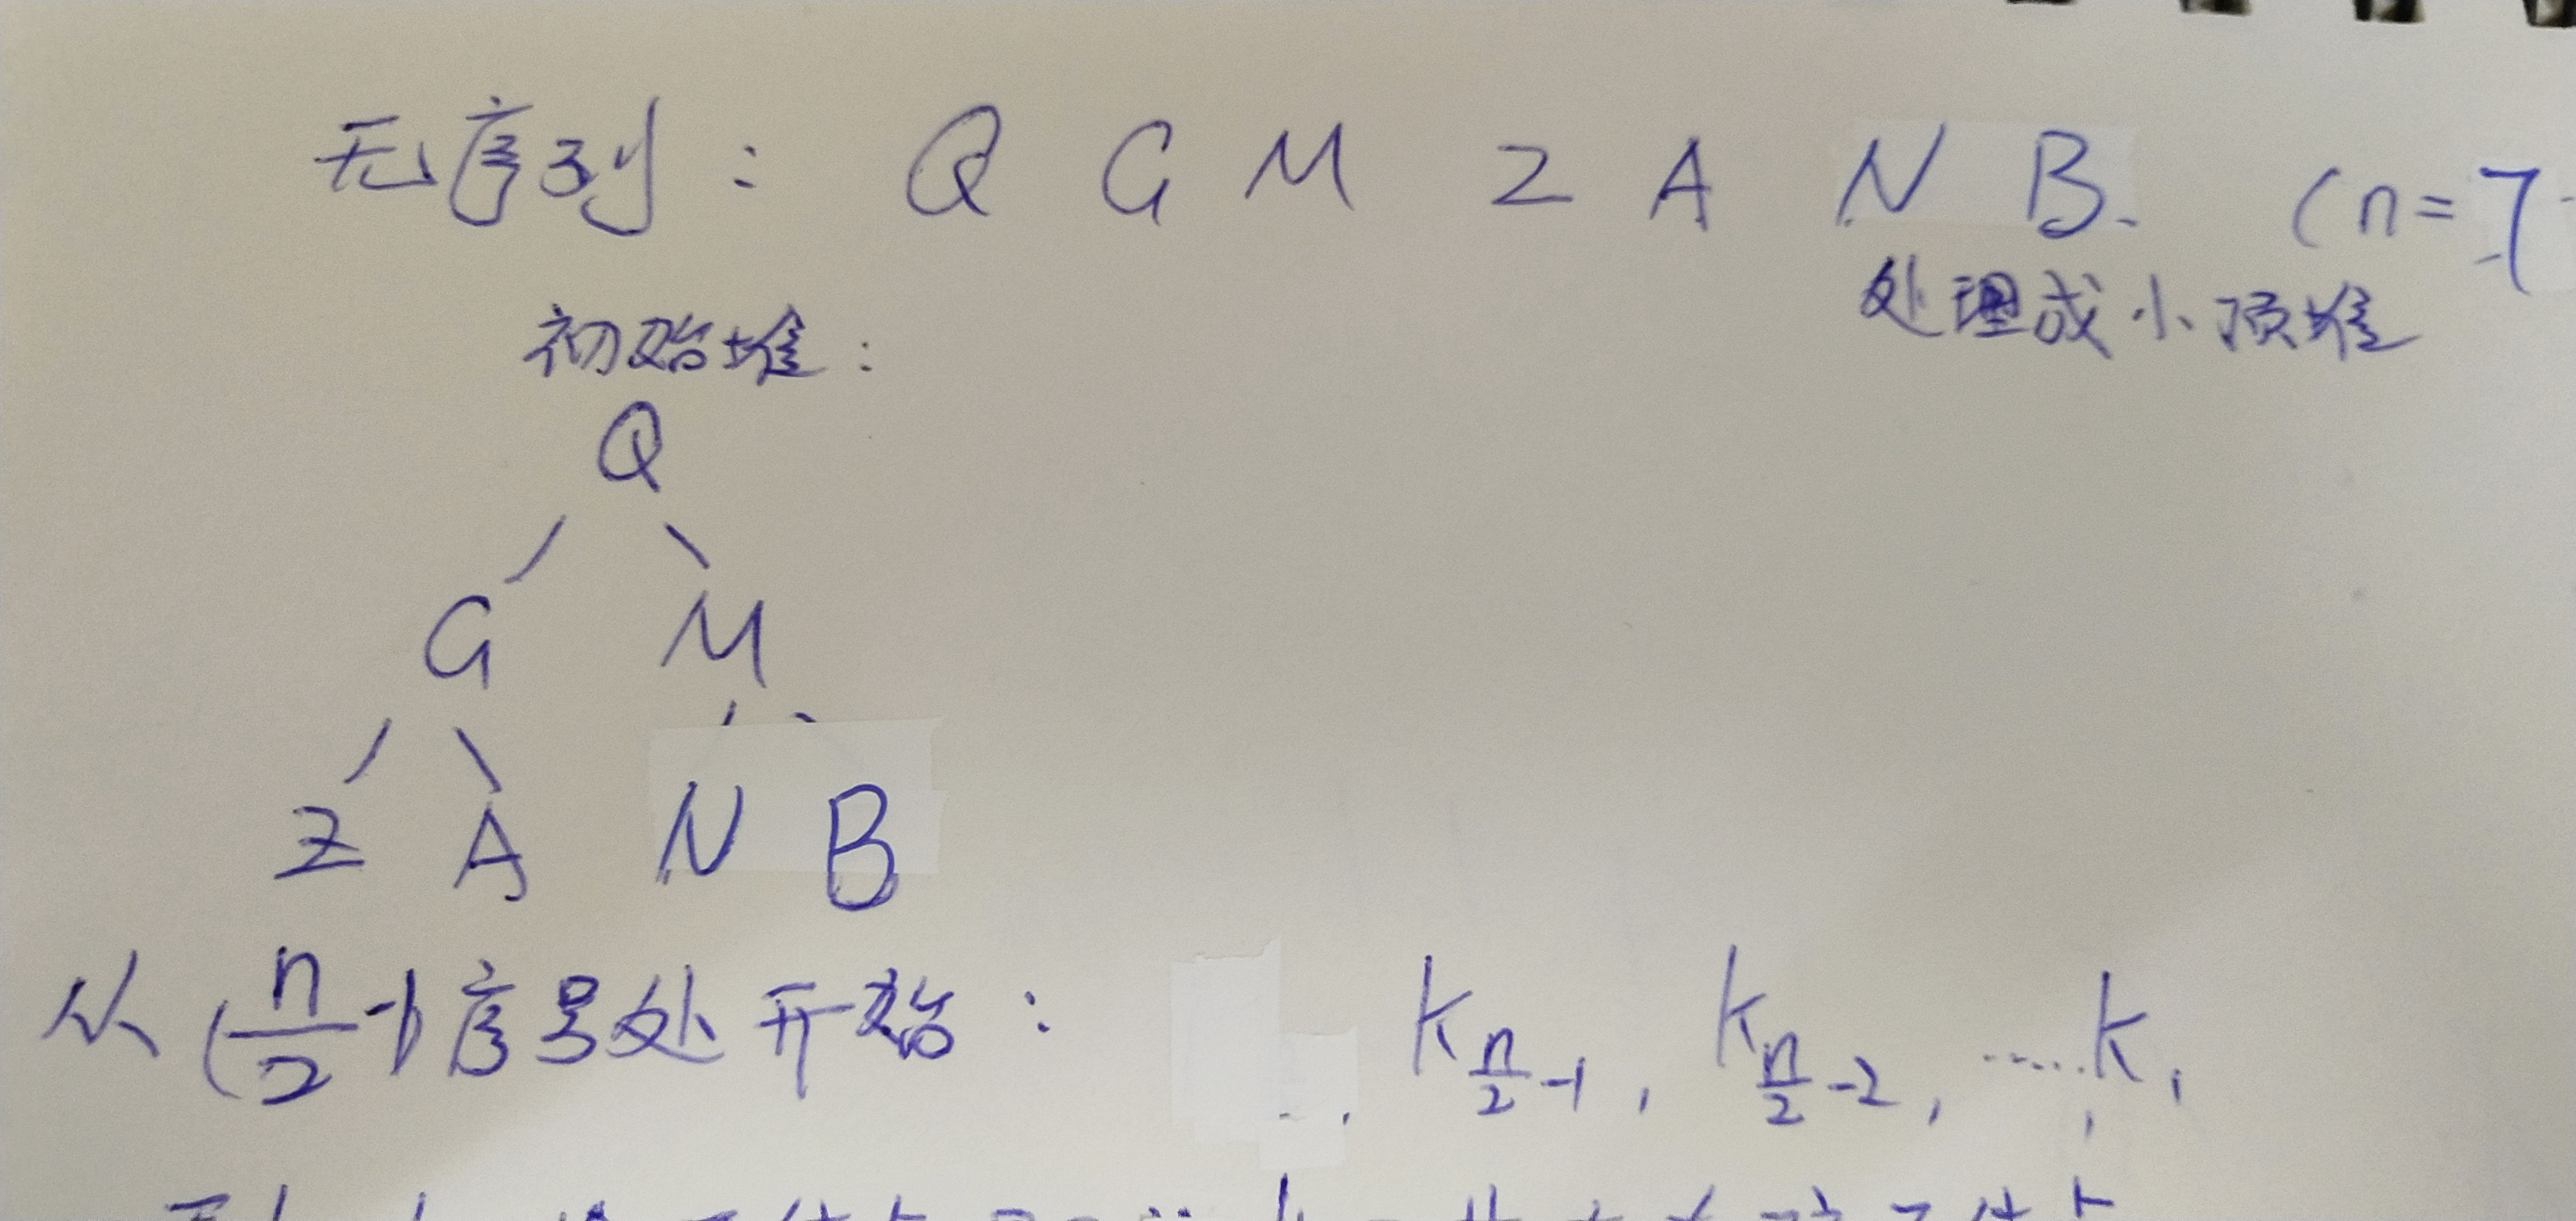 无序列: Q G M Z A N B. (n=7
处理成小顶堆
初始堆:
Q
G M
Z A N B
从(n/2-1)序号处开始: K n/2-1, K n/2-2, ....K1